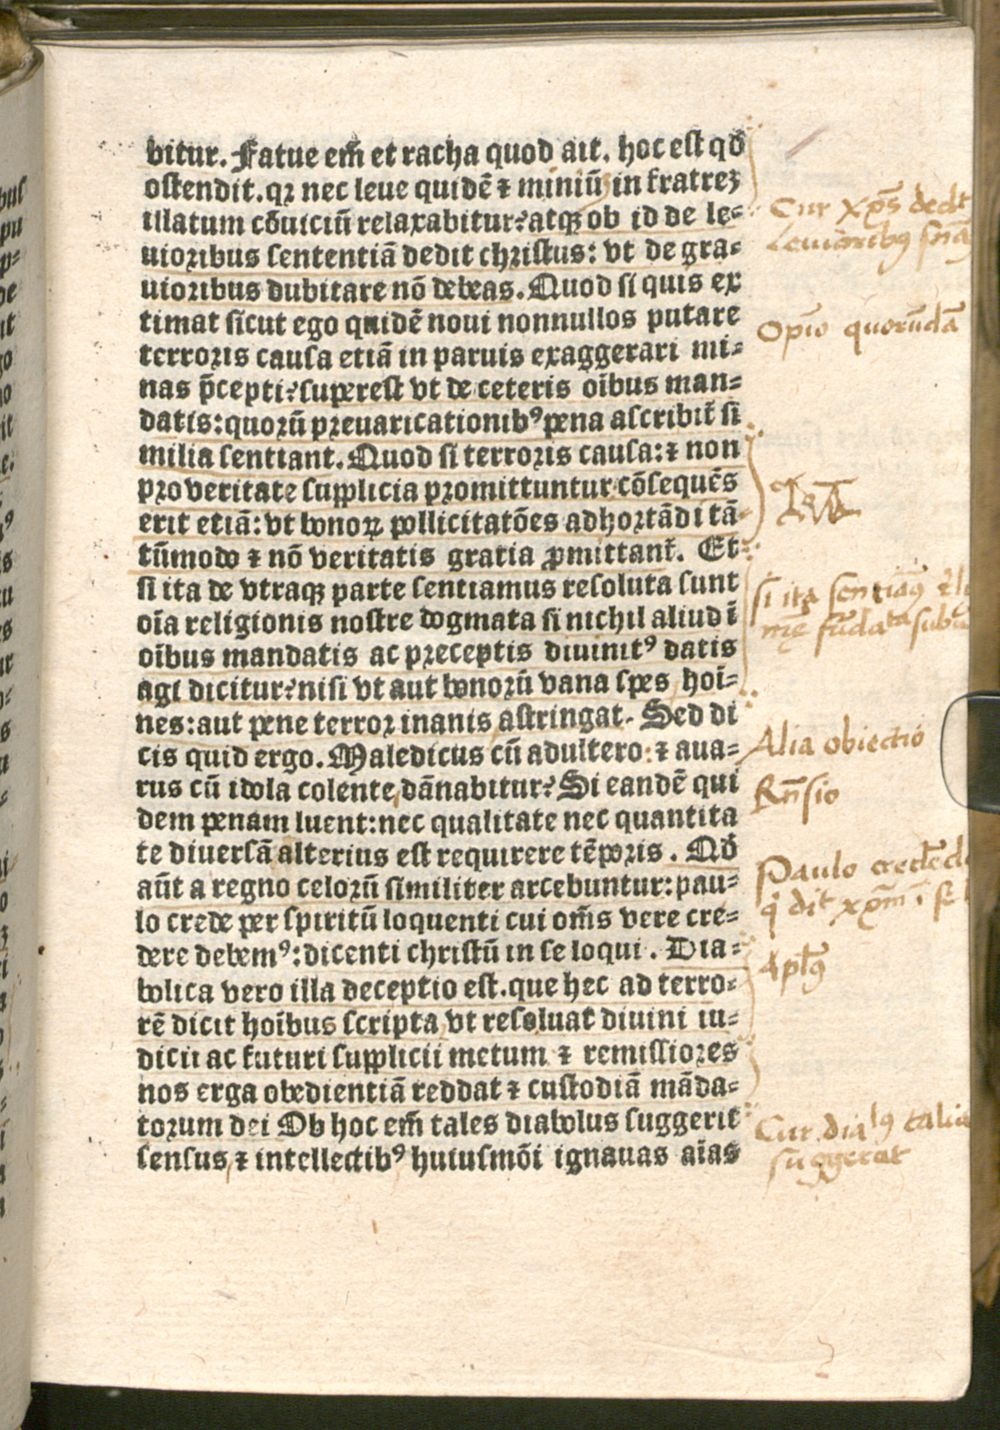 bitur. Fatue em̄ et racha quod ait. hoc est qđ
ostendit. qꝛ nec leue quidē ⁊ miniū in fratreꝫ
illatum cōuiciū relaxabitur? atqꝫ ob id de le⸗
uioꝛibus sententiā dedit chꝛistus: vt de gra⸗
uioꝛibus dubitare nō debeas. Quod si quis ex
timat sicut ego quidē noui nonnullos putare
terroꝛis causa etiā in paruis exaggerari mi⸗
nas p̄cepti? superest vt de ceteris oībus man⸗
datis: quoꝛū pꝛeuaricationibꝰ pena ascribit̄ si
milia sentiant. Quod si terroꝛis causa: ⁊ non
pꝛo veritate supplicia pꝛomittuntur cōsequēs
erit etiā: vt bonoꝝ pollicitatōes adhoꝛtādi tā
tūmodo ⁊ nō veritatis gratia ꝓmittant̄. Et
si ita de vtraqꝫ parte sentiamus resoluta sunt
oīa religionis nostre dogmata si nichil aliud ī
oībus mandatis ac pꝛeceptis diuinitꝰ datis
agi dicitur? nisi vt aut bonoꝛū vana spes hoī⸗
nes: aut pene terroꝛ inanis astringat. Sed di
cis quid ergo. Maledicus cū adultero: ⁊ aua⸗
rus cū idola colente dānabitur? Si eandē qui
dem penam luent: nec qualitate nec quantita
te diuersā alterius est requirere tēpoꝛis. Nō
aūt a regno celoꝛū similiter arcebuntur: pau⸗
lo crede per spiritū loquenti cui om̄s vere cre⸗
dere debemꝰ: dicenti christū in se loqui. Dia⸗
bolica vero illa deceptio est. que hec ad terro⸗
rē dicit hoībus scripta vt resoluat diuini iu⸗
dicii ac futuri supplicii metum ⁊ remissioꝛes
nos erga obedientiā reddat ⁊ custodiā māda⸗
toꝛum dei Ob hoc em̄ tales diabolus suggerit
sensus ⁊ intellectibꝰ huiusmōi ignauas aīas
Cur xp̄s dedit
Leuioribꝰ
Opīo quorūdā
si ita
Alia obiectio
Rn̄sio
Paulo
Cur talia
suggerat